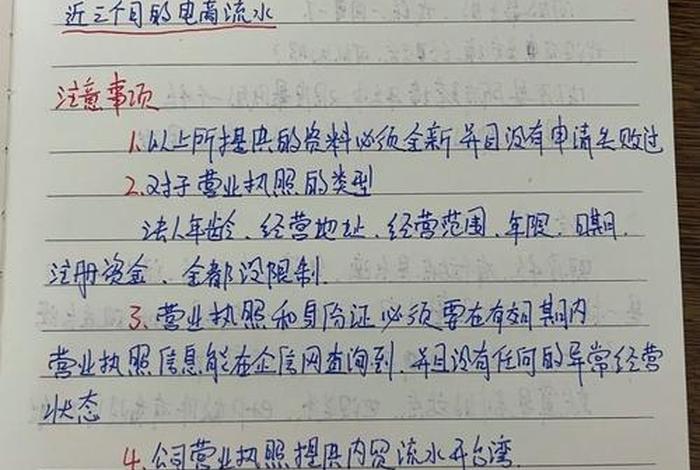 近三个月的电商流水
注意事项
1.以上所提供的资料必须全新并且没有申请失败过
2.对于营业执照的类型
法人年龄、经营地址、经营范围、年限、日期、
注册资金、全都没限制.
3、营业执照和身份证必须要在有效期内
营业执照信息能在企信网查询到.并且没有任何的异常经营
状态
4、公司营业执照提供内贸流水开台湾.